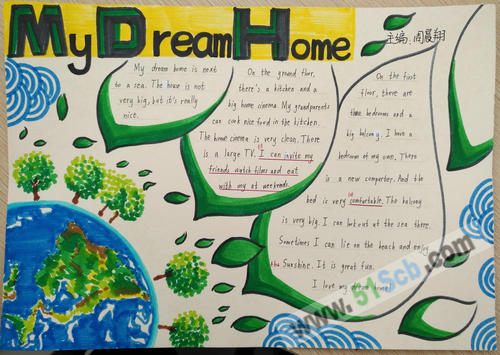 My Dream Home
主编:周晨翔
My dream home is next
to a sea. The house is not
very big, but it's really
nice.
On the ground floor,
there's a kitchen and a
big home cinema. My grandparents
can cook nice food in the kitchen.
The home cinema is very clean. There
is a large TV. I can invite my
friends watch films and eat
with my at weekends.
On the first
floor, there are
three bedrooms and a
big balcony. I have a
bedroom of my own. There
is a new computer. And the
bed is very comfortable. The balcony
is very big. I can look out at the sea there.
Sometimes I can lie on the beach and enjoy
the Sunshine. It is great fun.
I love my dream home!
www.51Scb.com